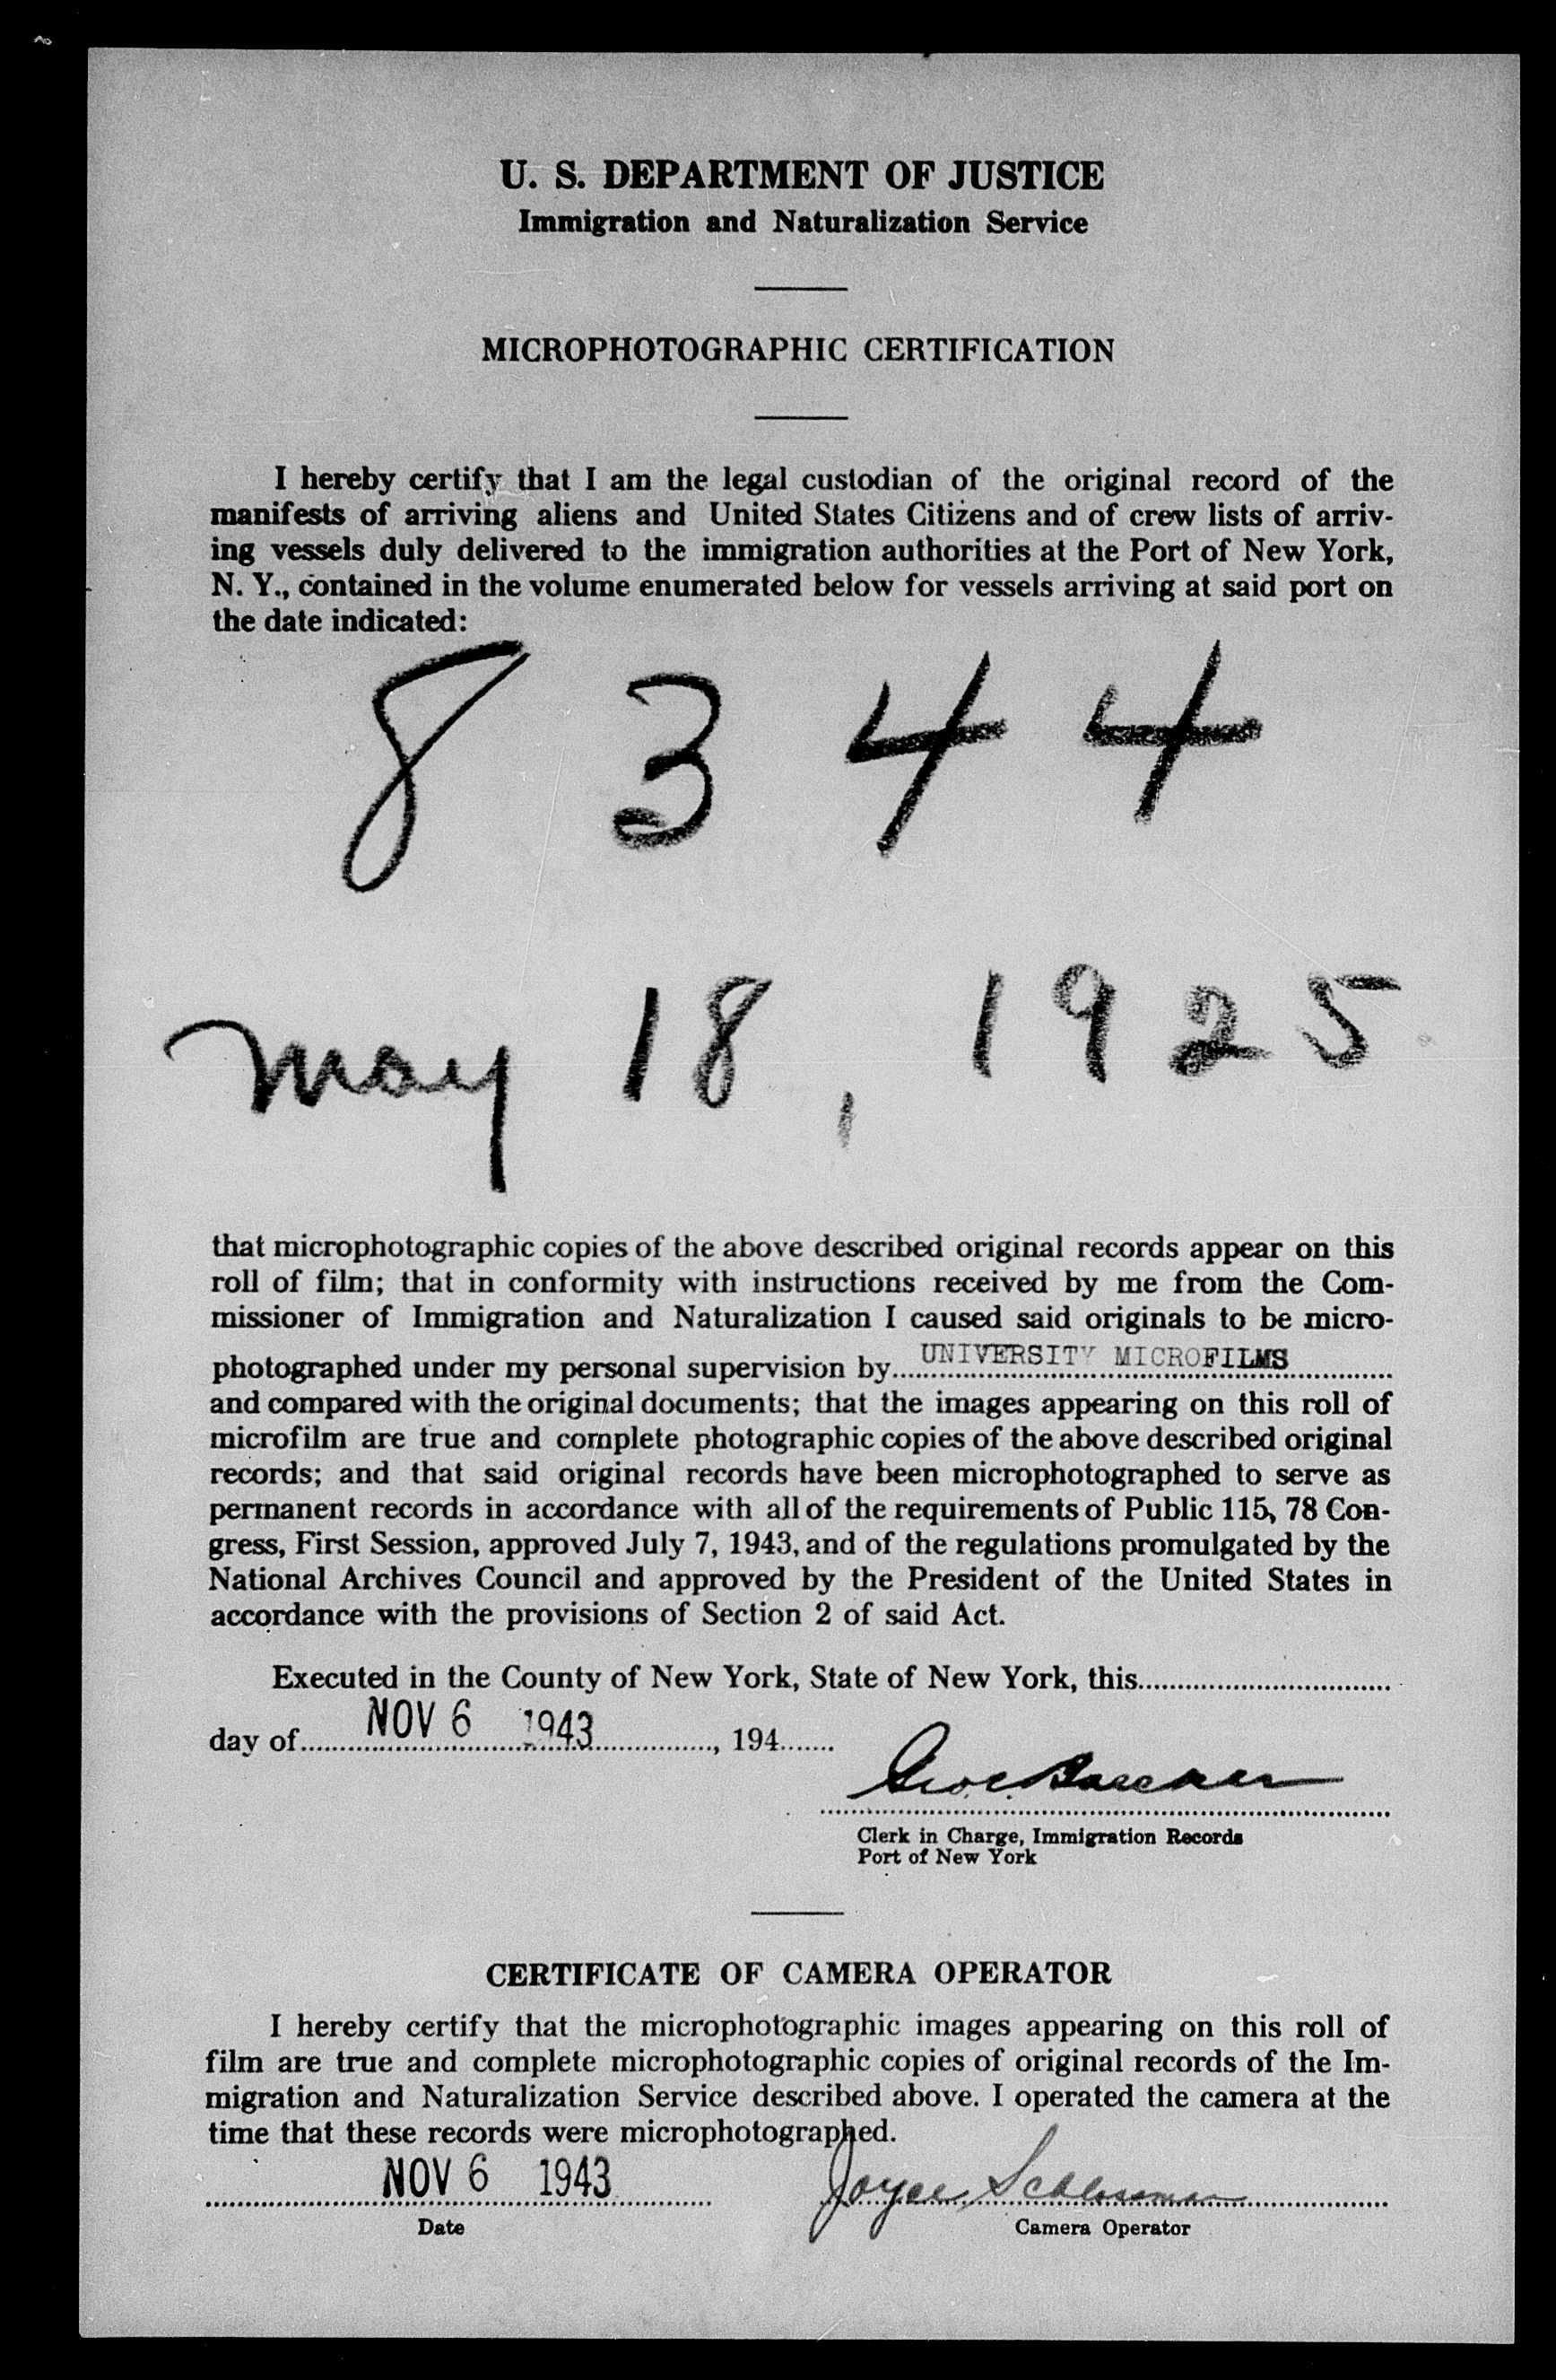 U. S. DEPARTMENT OF JUSTICE
Immigration and Naturalization Service
MICROPHOTOGRAPHIC CERTIFICATION
I hereby certify that I am the legal custodian of the original record of the
manifests of arriving aliens and United States Citizens and of crew lists of arriv-
ing vessels duly delivered to the immigration authorities at the Port of New York,
N. Y., contained in the volume enumerated below for vessels arriving at said port on
the date indicated:
8 3 4 4
May 18, 1925
that microphotographic copies of the above described original records appear on this
roll of film; that in conformity with instructions received by me from the Com-
missioner of Immigration and Naturalization I caused said originals to be micro-
photographed under my personal supervision by UNIVERSITY MICROFILMS
and compared with the original documents; that the images appearing on this roll of
microfilm are true and complete photographic copies of the above described original
records; and that said original records have been microphotographed to serve as
permanent records in accordance with all of the requirements of Public 115, 78 Con-
gress, First Session, approved July 7, 1943, and of the regulations promulgated by the
National Archives Council and approved by the President of the United States in
accordance with the provisions of Section 2 of said Act.
Executed in the County of New York, State of New York, this
day of NOV 6 1943, 194
Clerk in Charge, Immigration Records
Port of New York
CERTIFICATE OF CAMERA OPERATOR
I hereby certify that the microphotographic images appearing on this roll of
film are true and complete microphotographic copies of original records of the Im-
migration and Naturalization Service described above. I operated the camera at the
time that these records were microphotographed.
NOV 6 1943 Joyce Schlossman
Date Camera Operator